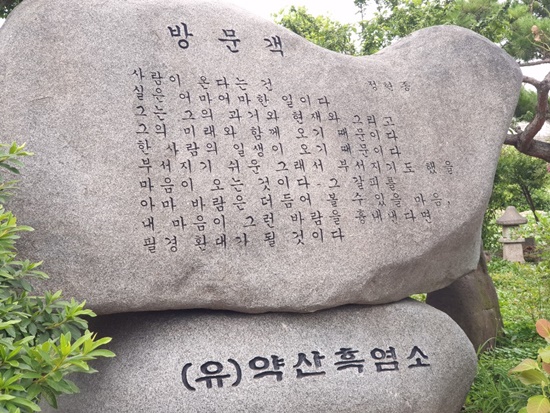 방문객
정현종
사람이 온다는 건
실은 어마어마한 일이다
그는 그의 과거와 현재와 그리고
그의 미래와 함께 오기 때문이다
한 사람의 일생이 오기 때문이다
부서지기 쉬운 그래서 부서지기도 했을
마음이 오는 것이다-그 갈피를
아마 바람은 더듬어 볼 수 있을 마음,
내 마음이 그런 바람을 흉내낸다면
필경 환대가 될 것이다
(유)약산흑염소